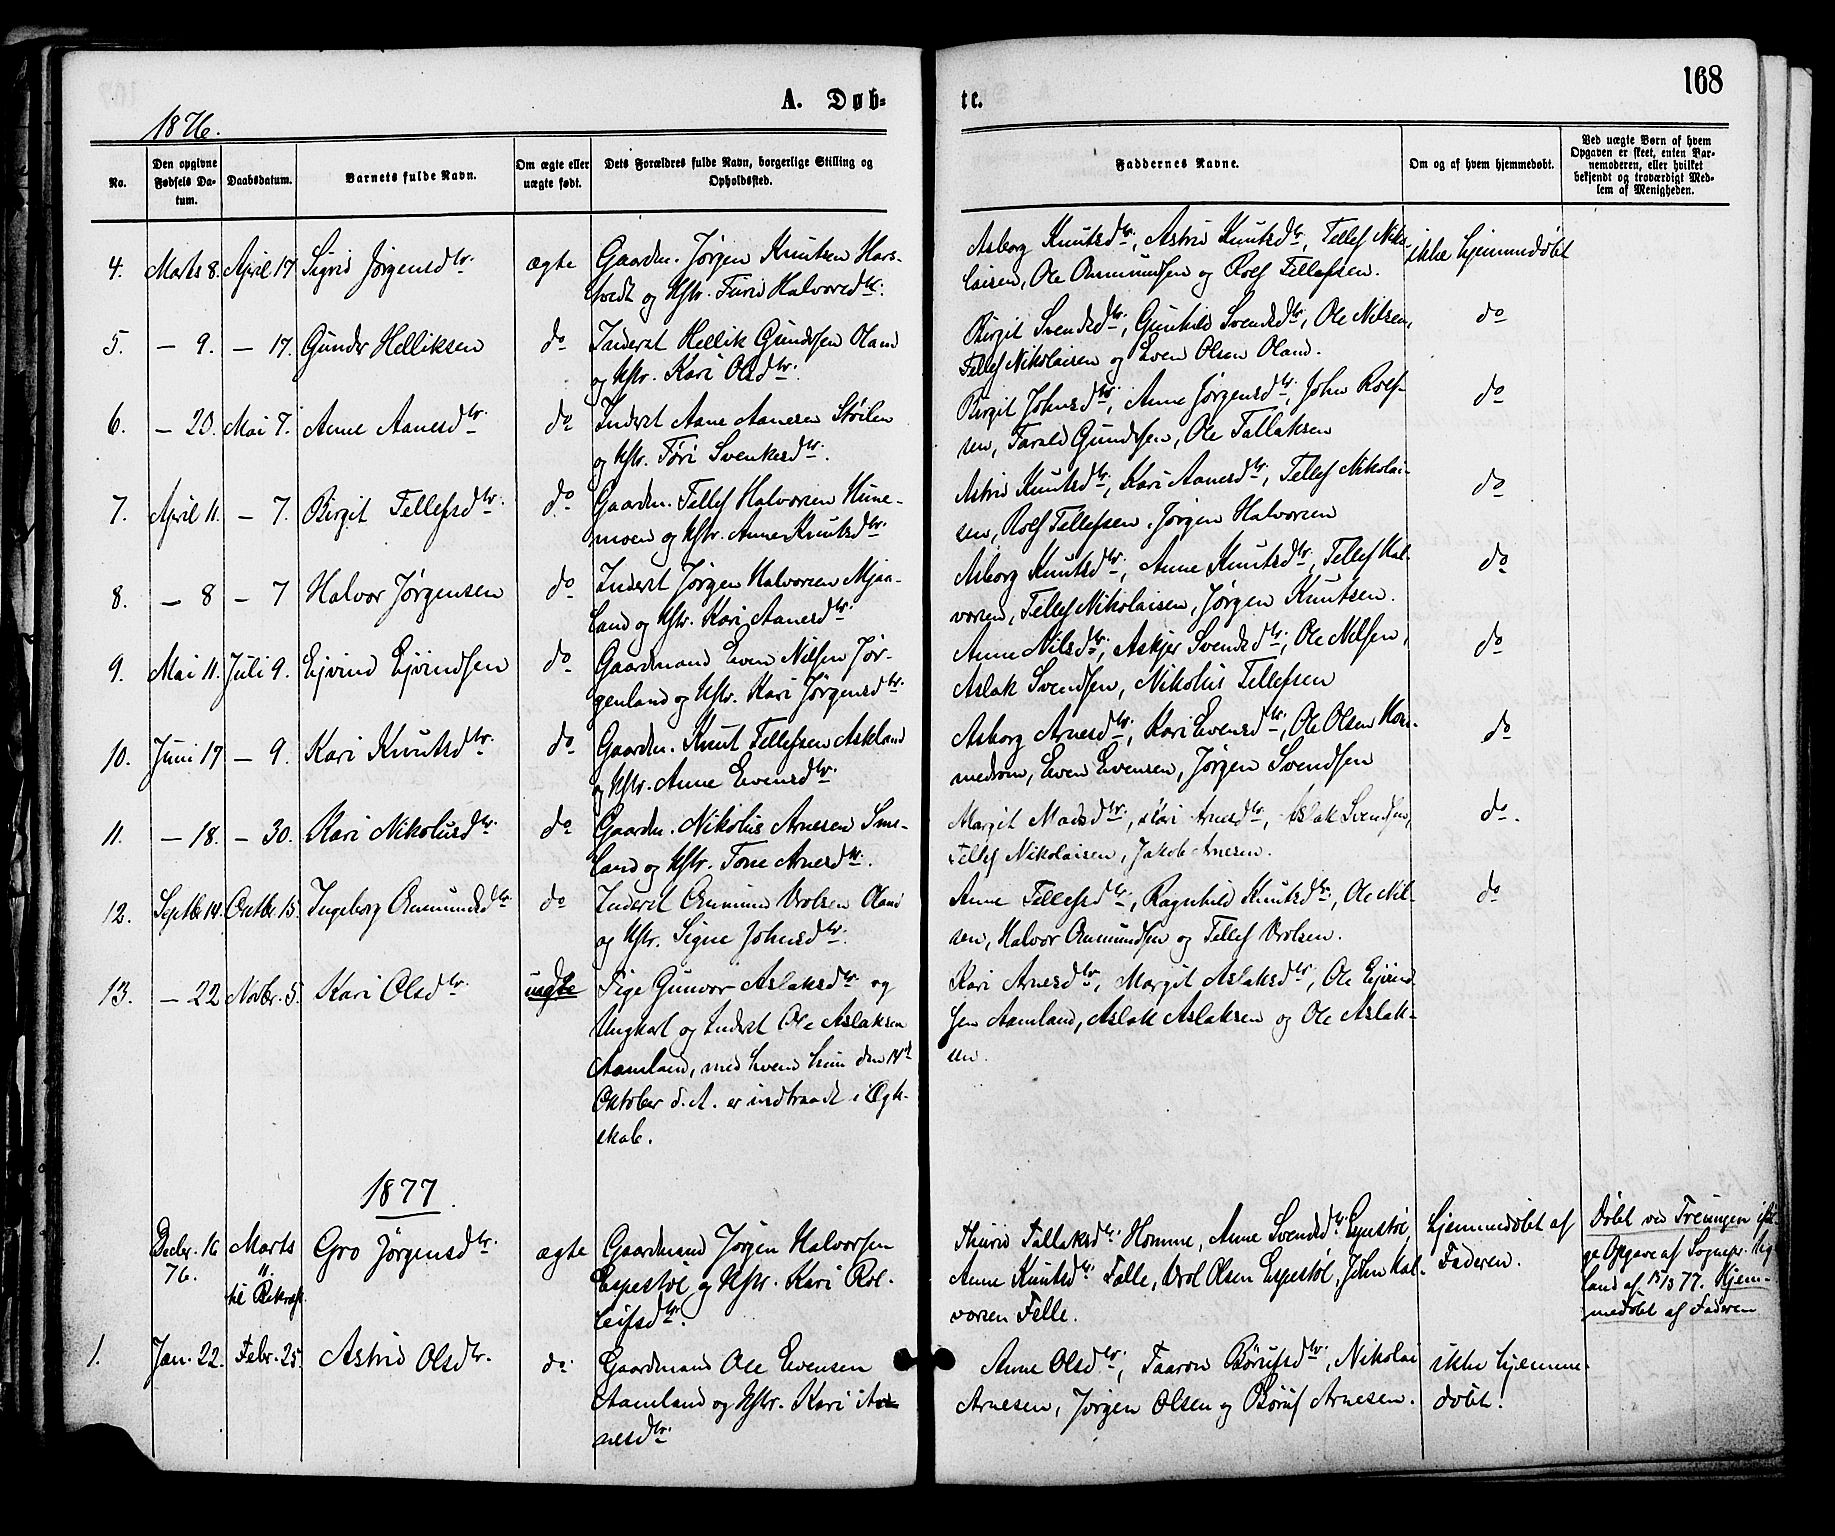 168
A. Døb-
te.
1876.
No.
Den opgivne Fødsels Da-tum.
Daabsdatum.
Barnets fulde Navn.
Om ægte eller uægte født.
Dets Forældres fulde Navn, borgerlige Stilling og Opholdssted.
Faddernes Navne.
Om og af hvem hjemmedøbt.
Ved uægte Børn af hvem
Opgaven er skeet, enten Bar-
nemoderen, eller hvilket
bekjendt og troværdigt Med-
lem af Menigheden.
4. Marts 8. April 17. Sigrid Jørgensdtr. ægte Gaardm. Jørgen Knutsen Hars-
tvedt og Hstr. Turid Halvorsdtr.
Asborg Knutsdtr., Astrid Knutsdtr., Tellef Niko-
laisen, Ole Omundsen og Rolf Tellefsen.
ikke hjemmedøbt
5. — 9. — 17. Gunder Helliksen do Inderst Hellik Gundersen Oland
og Hstr. Kari Olsdtr.
Birgit Svendsdtr., Gunhild Svendsdtr., Ole Nilsen,
Tellef Nikolaisen og Even Olsen Oland.
do
6. — 20. Mai 7. Anne Aanesdtr. do Inderst Aane Aanesen Støilen
og Hstr. Tøri Svenkesdtr.
Birgit Johnsdtr., Anne Jørgensdtr., John Rolf-
sen, Tarald Gundersen, Ole Tallaksen
do
7. April 11. — 7. Birgit Tellefsdtr. do Gaardm. Tellef Halvorsen Hune-
moen og Hstr. Anne Knutsdtr.
Astrid Knutsdtr., Kari Aanesdtr., Tellef Nikolai-
sen, Rolf Tellefsen, Jørgen Halvorsen
do
8. — 8 — 7 Halvor Jørgensen do Inderst Jørgen Halvorsen Mjaa-
land og Hstr. Kari Aanesdtr.
Asborg Knutsdtr., Anne Knutsdtr., Tellef Hal-
vorsen, Tellef Nikolaisen, Jørgen Knutsen.
do
9. Mai 11. Juli 9. Ejvind Ejvindsen do Gaardmand Even Nilsen Jør-
genland og Hstr. Kari Jørgensdtr.
Anne Nilsdtr., Askjer Svendsdtr., Ole Nilsen,
Aslak Svendsen, Nikolus Tellefsen
do
10. Juni 17 — 9. Kari Knutsdtr. do Gaardm. Knut Tellefsen Askland
og Hstr. Anne Evensdtr.
Asborg Arnesdtr., Kari Evensdtr., Ole Olsen
Even Evensen, Jørgen Svendsen
do
11. — 18. — 30. Kari Nikolusdtr. do Gaardm. Nikolus Arnesen Sms-
land og Hstr. Tone Arnesdtr.
Margit Madsdtr., Kari Arnesdtr., Aslak Svendsen,
Tellef Nikolaisen, Jakob Arnesen.
do.
12. Septbr 14. Octbr. 15. Ingeborg Omundsdtr. do Inderst Omund Vrolsen Oland
og Hstr. Signe Johnsdtr.
Anne Tellefsdtr., Ragnhild Knutsdtr., Ole Nil-
sen, Halvor Omundsen og Tellef Vrolsen.
do
13. — 22 Novbr. 5. Kari Olsdtr. uægte Pige Gunvor Aslaksdtr. og
Ungkarl og Inderst Ole Aslaksen
Aamland, med hvem hun den 14de
Oktober d. A. er indtraadt i Ægte-
skab.
Kari Arnesdtr., Margit Aslaksdtr., Ole Ejvind-
sen Aamland, Aslak Aslaksen og Ole Aslak-
sen.
1877.
Decbr. 16 76. Marts " til Bekræft. Gro Jørgensdtr. ægte Gaardmand Jørgen Halvorsen
Espestøl og Hstr. Kari Rol-
leifsdtr.
Thurid Tallaksdtr. Homme, Anne Svendsdtr. Espestøl,
Anne Knutsdtr. Fælle, Vrol Olsen Espestøl, John Hal-
vorsen Felle.
Hjemmedøbt af
Faderen.
Døbt ved Treungen iføl-
ge Opgave af Sognepr.
land af 15/3 77. Hjem-
medøbt af Faderen
1. Jan. 22. Febr. 25. Astrid Olsdtr. do. Gaardmand Ole Evensen
Aamland og Hstr. Kari Ar-
nesdtr.
Anne Olsdtr., Taaron Børufsdtr., Nikolai
Arnesen, Jørgen Olsen og Børuf Arnesen.
ikke hjemme-
døbt!